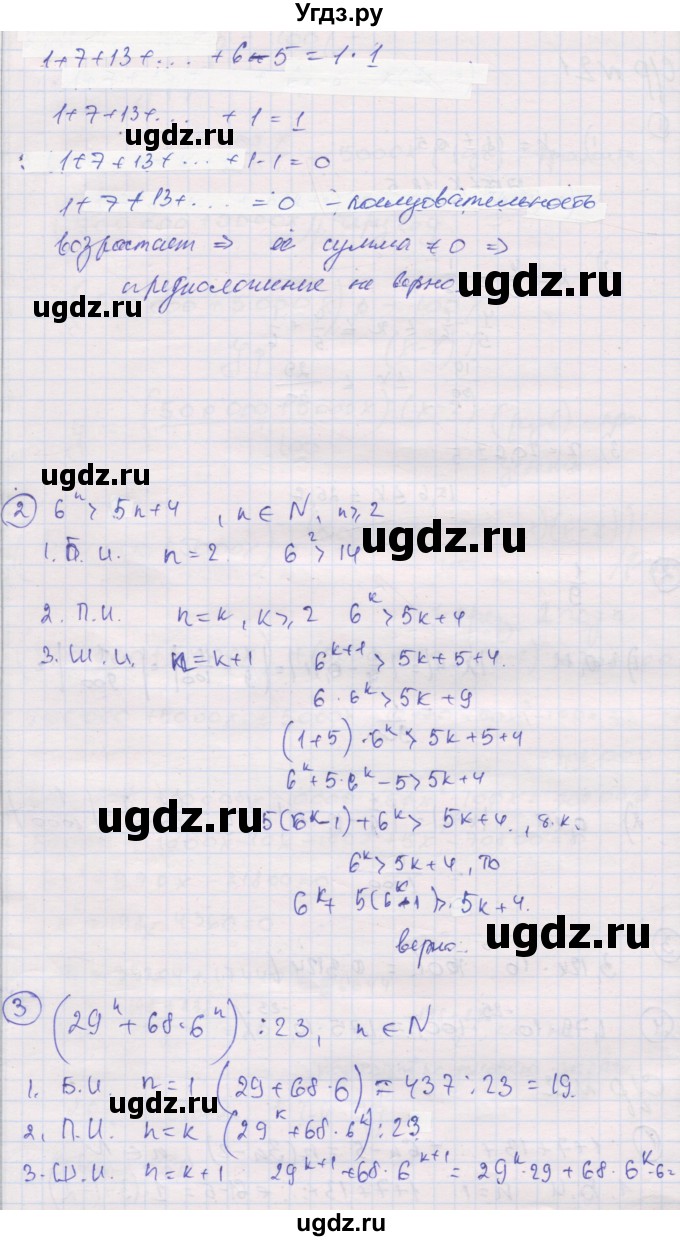 Угдз.ру
1+7+13+... +6-5=1·1
1+7+13+... +1=1
ugdz.ru
1+7+13+...+1-1=0
1+7+13+... =0 - последовательность
возрастает ⇒ её сумма ≠0 ⇒
ugdz.ru
предположение не верно.
ugdz.ru
ugdz.ru
② 6ⁿ > 5n+4, n∈N, n⩾2
1. Б.И. n=2. 6²>14
ugdz.ru
2. П.И. n=k, k⩾2 6ᵏ>5k+4
3. Ш.И. n=k+1 6ᵏ⁺¹>5k+5+4.
6·6ᵏ>5k+9
(1+5)·6ᵏ>5k+5+4
6ᵏ+5·6ᵏ-5>5k+4
ugdz.ru
5(6ᵏ-1)+6ᵏ> 5k+4., т.к.
6ᵏ>5k+4, то
6ᵏ+ 5(6ᵏ-1)>5k+4.
ugdz.ru
верно.
③ (29ⁿ+68·6ⁿ)⋮23, n∈N
1. Б.И. n=1 (29+68·6)=437:23=19.
ugdz.ru
2. П.И. n=k (29ᵏ+68·6ᵏ)⋮23
3. Ш.И. n=k+1 29ᵏ⁺¹+68·6ᵏ⁺¹=29ᵏ·29+68·6ᵏ·6=
ugdz.ru